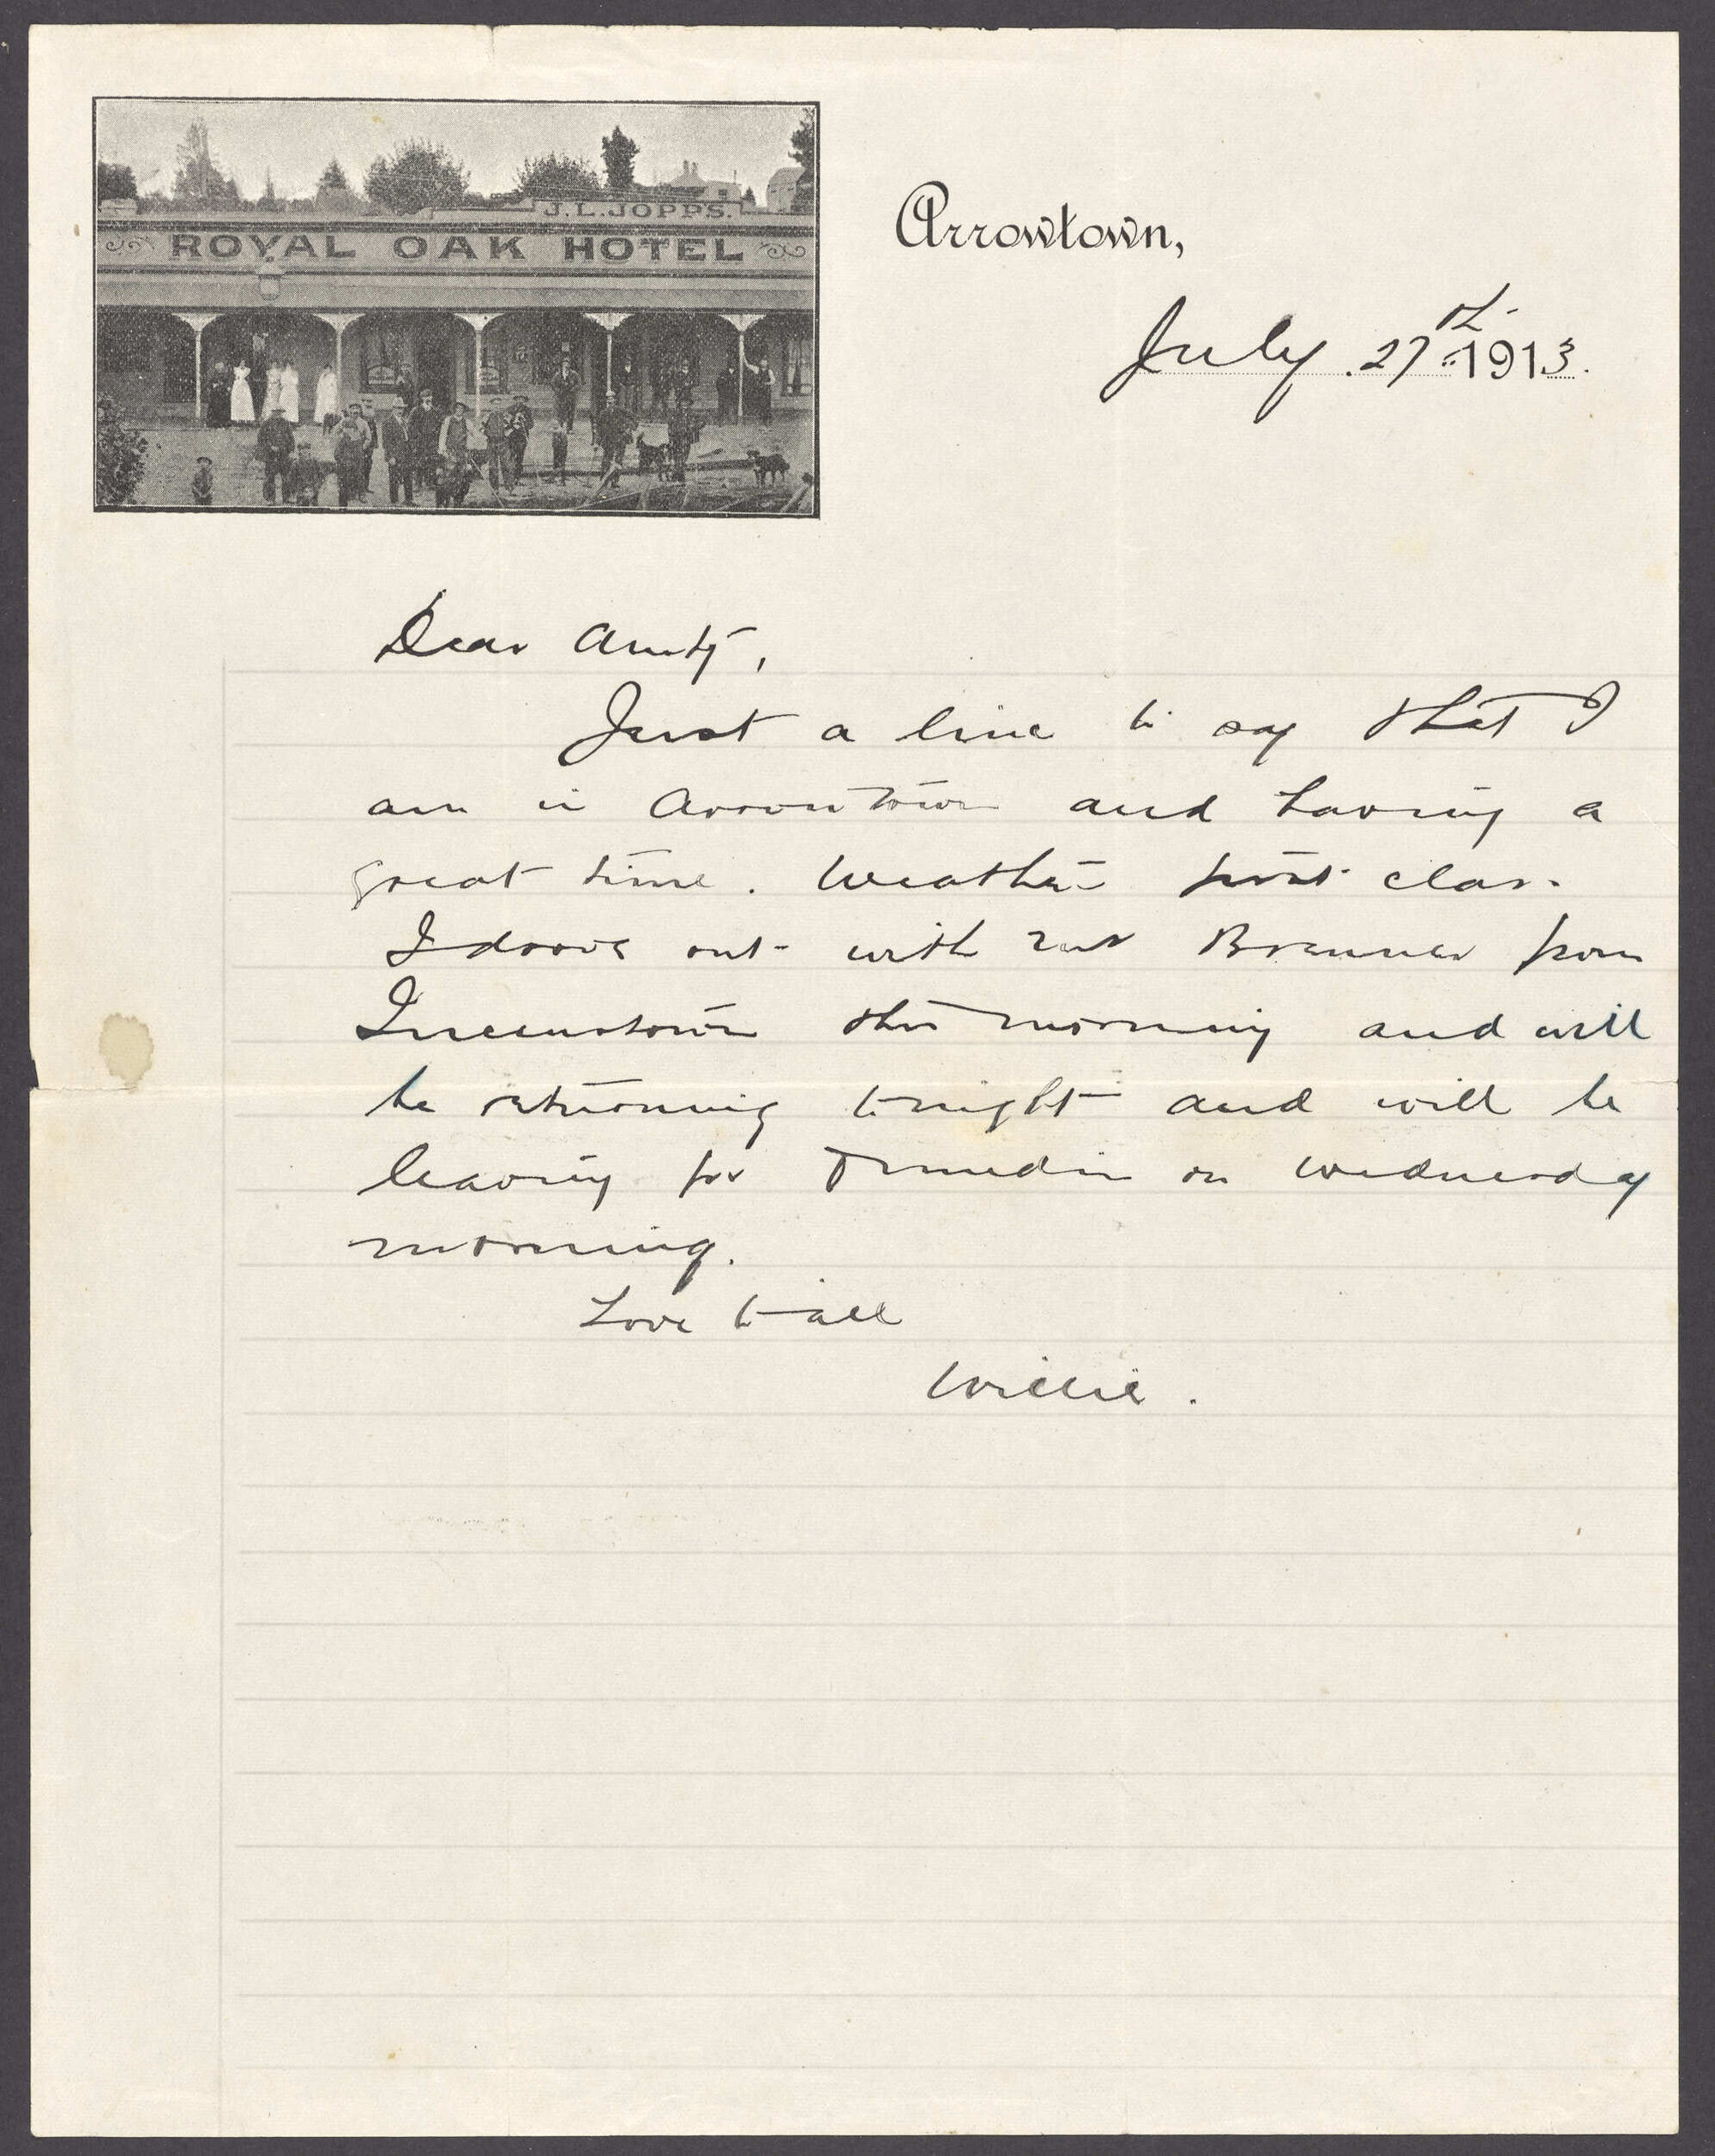 J.L.JOPPS.
ROYAL OAK HOTEL
Arrowtown,
July 27th 1913.
Dear Aunty,
Just a line to say that I
am in Arrowtown and having a
great time. Weather first class.
I drove out with Brenner from
Queenstown this morning and will
be returning tonight and will be
leaving for Dunedin on Wednesday
morning.
Love to all
Willie.